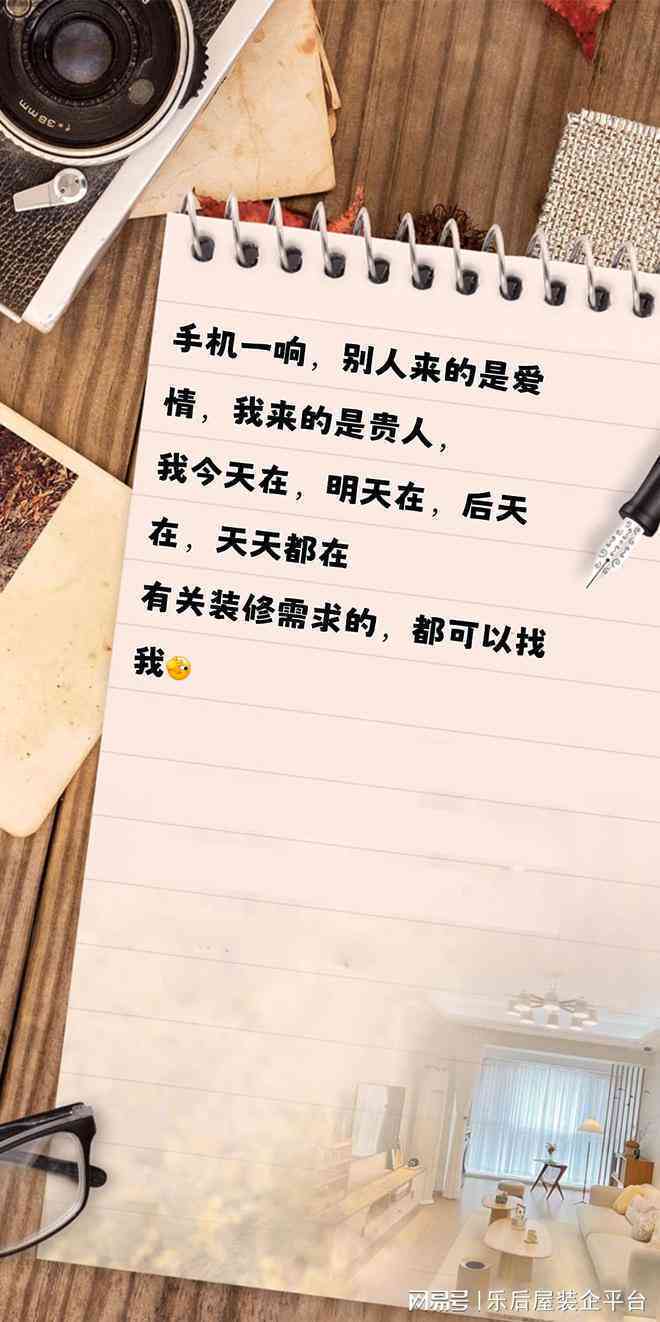 f=38mm
手机一响，别人来的是爱
情，我来的是贵人，
我今天在，明天在，后天
在，天天都在
有关装修需求的，都可以找
我
网易号 | 乐后屋装企平台